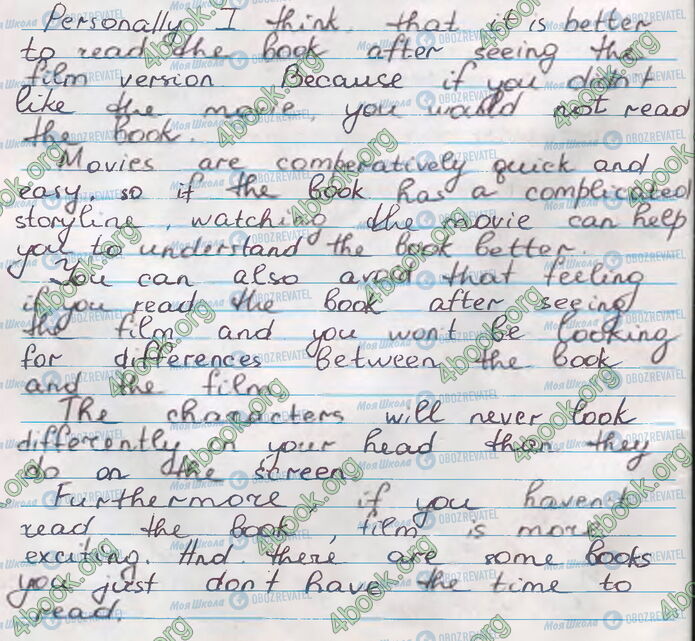 Personally I think that it is better
to read the book after seeing the
film version. Because if you don't
like the movie, you would not read
the book.
Movies are comberatively quick and
easy, so if the book has a complicated
storyline, watching the movie can help
you to understand the book better.
You can also avoid that feeling
if you read the book after seeing
the film and you won't be looking
for differences between the book
and the film
The characters will never look
differently in your head than they
do on the screen
Furthermore, if you haven't
read the book, film is more
exciting. And there are some books
you just don't have the time to
read.